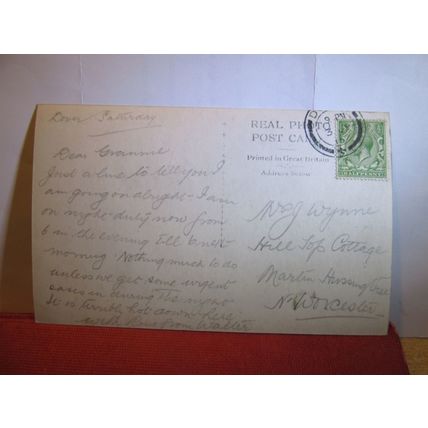 Dover Satturday
Dear Grannie
Just a line to tell you I
am going on alright - I am
on night duty now from
6 in the evening till 6 next
morning. Nothing much to do
unless we get some urgent
cases in during the night
It is terribly hot down here
with kiss from Walter
REAL PHO
POST CA
Printed in Great Britain
Address below
HALFPENNY
Mrs J Wynne
Hill Top Cottage
Martin Hussingtree
Nr Worcester